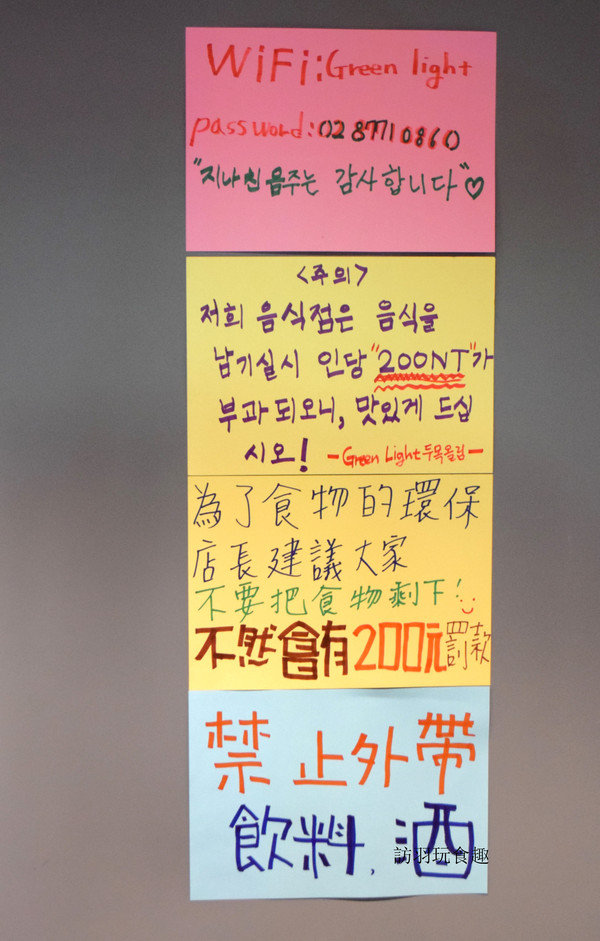 WiFi:Green light
password:0287710860
"지나친 음주는 감사합니다"♡
<주의>
저희 음식점은 음식을
남기실시 인당 "200NT"가
부과되오니, 맛있게 드십
시오!
-Green Light두목올림-
為了食物的環保
店長建議大家
不要把食物剩下!
不然會有200元罰款
禁止外帶
飲料,酒
訪羽玩食趣